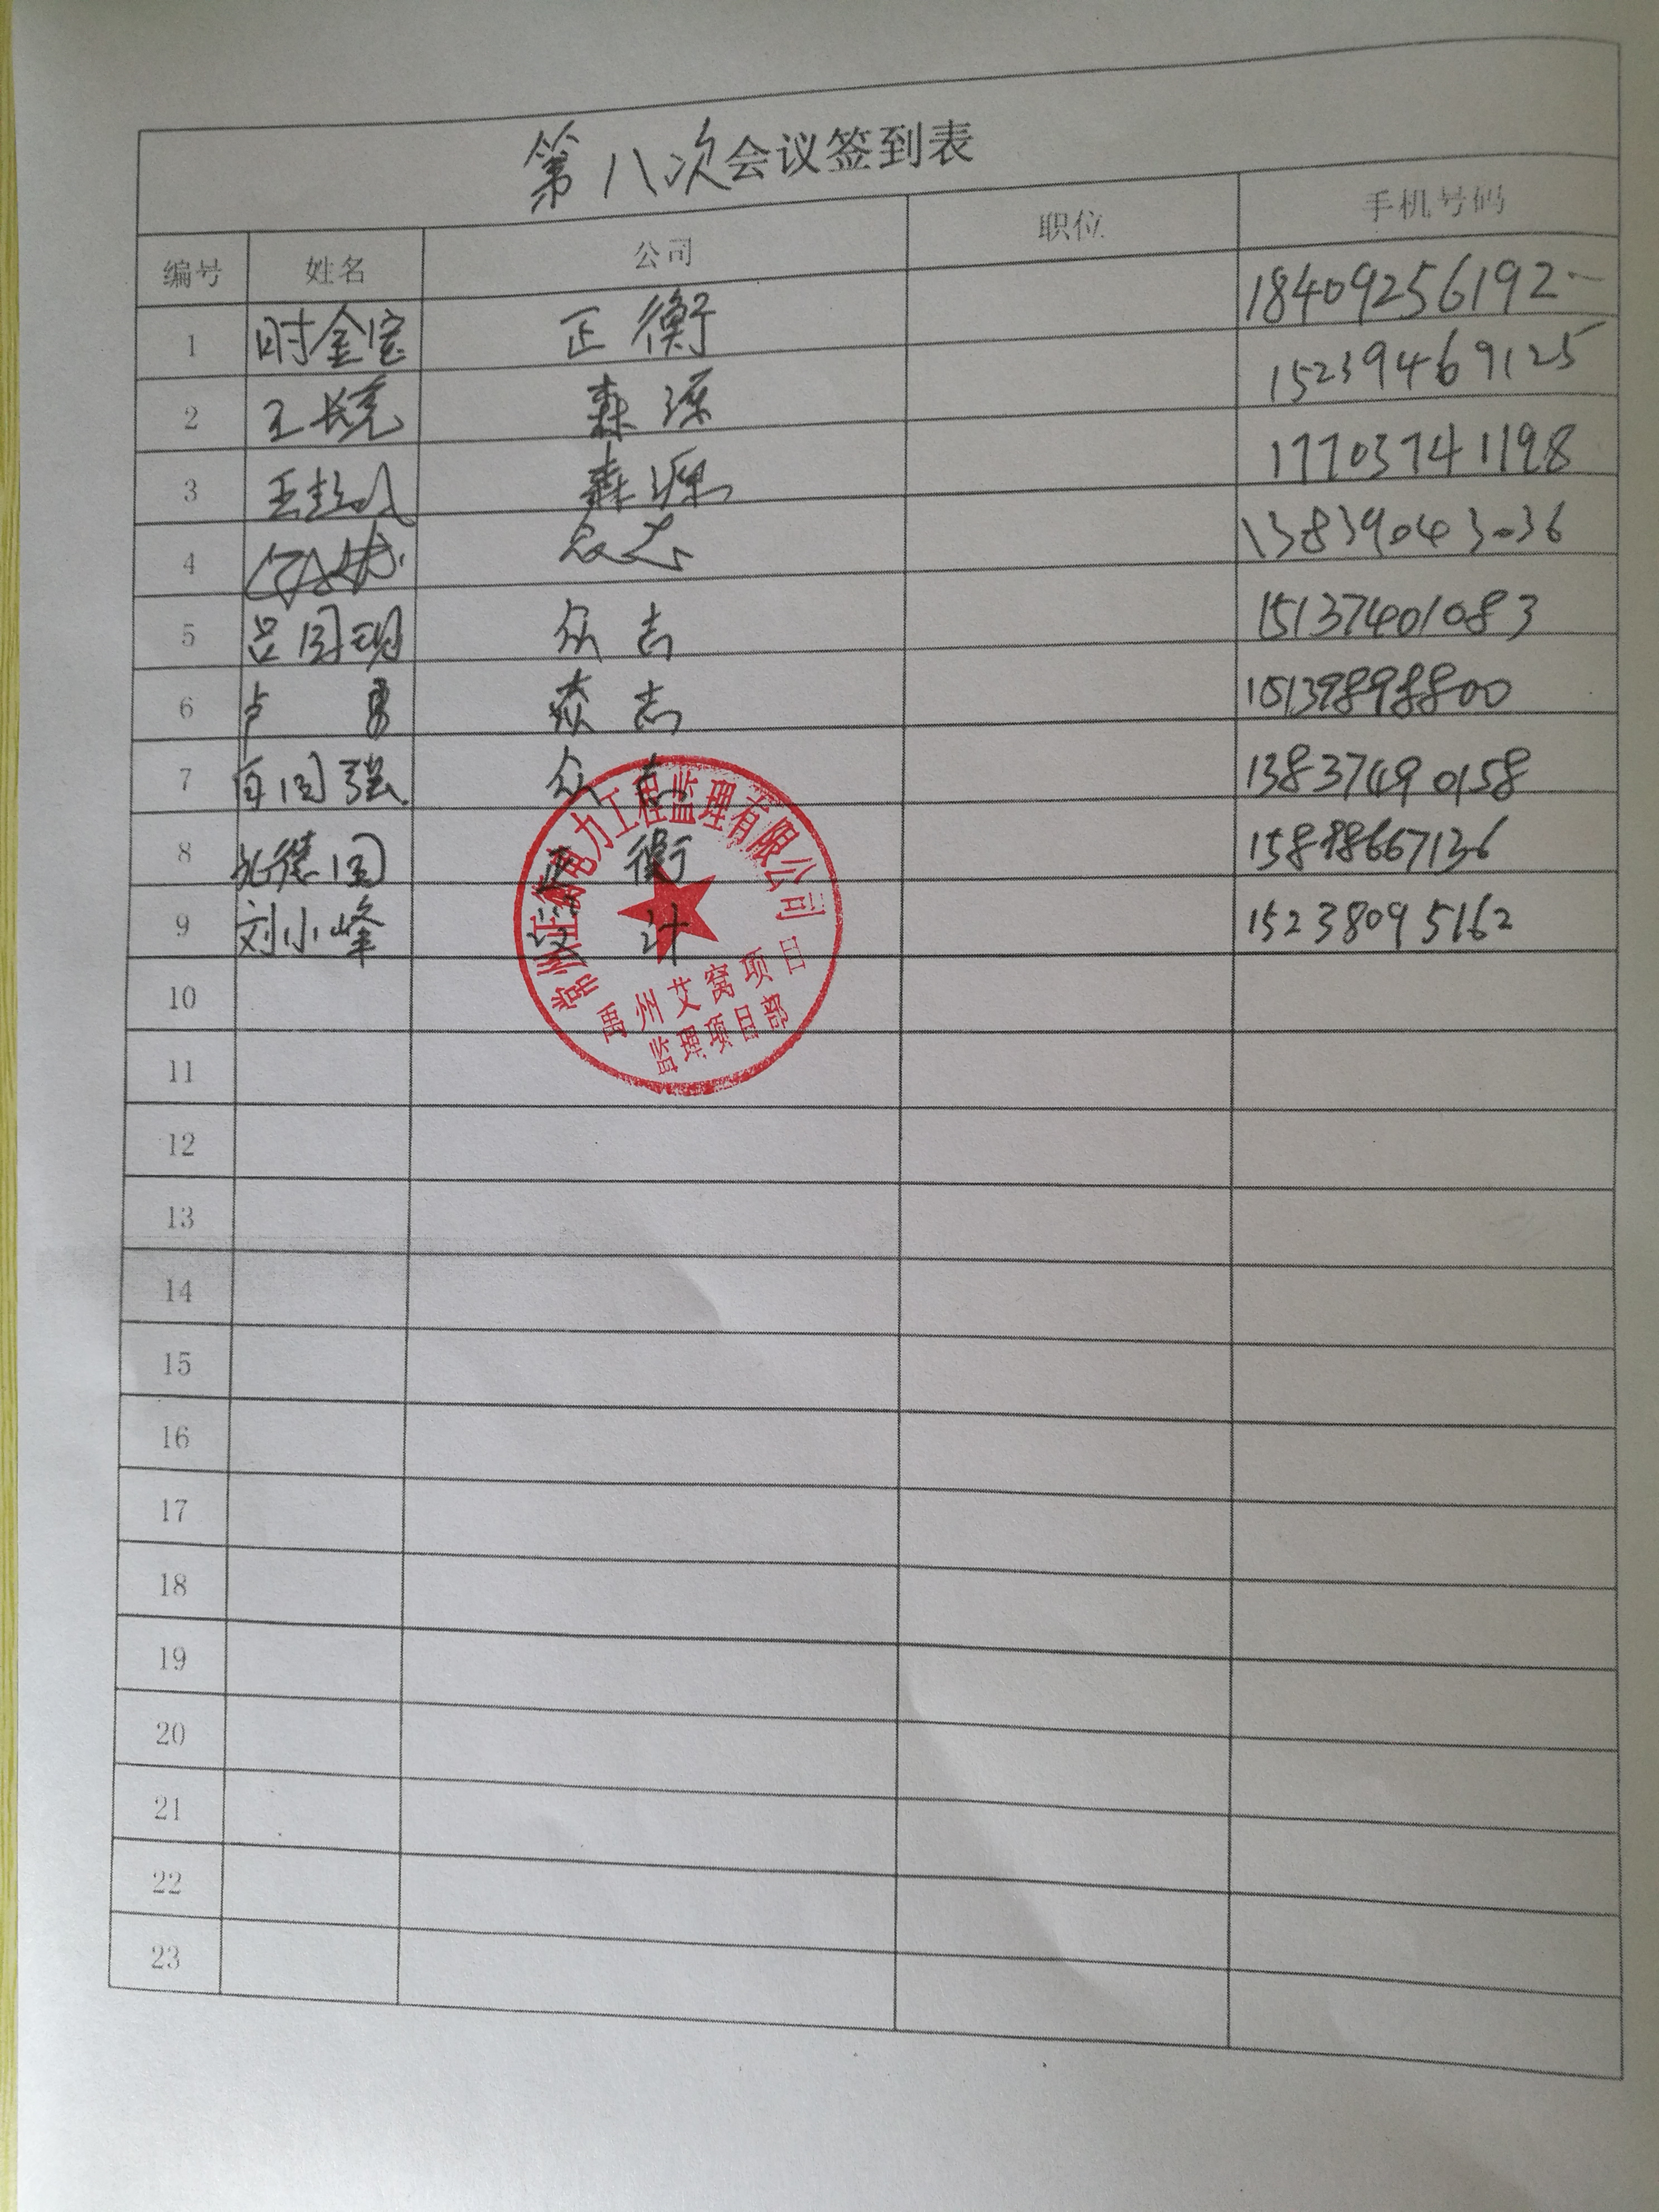 第八次会议签到表
编号 姓名 公司 职位 手机号码
1 时金宝 正衡 18409256192
2 王长亮 森源 15239469125
3 森源 17703741198
4 众志 13839043036
5 吕国现 众志 15137401083
6 卢勇 众志 15139898800
7 国强 众志 13837490158
8 德国 正衡 15898667136
9 刘小峰 设计 15238095162
常州正衡电力工程监理有限公司
禹州艾窝项目
监理项目部
10
11
12
13
14
15
16
17
18
19
20
21
22
23